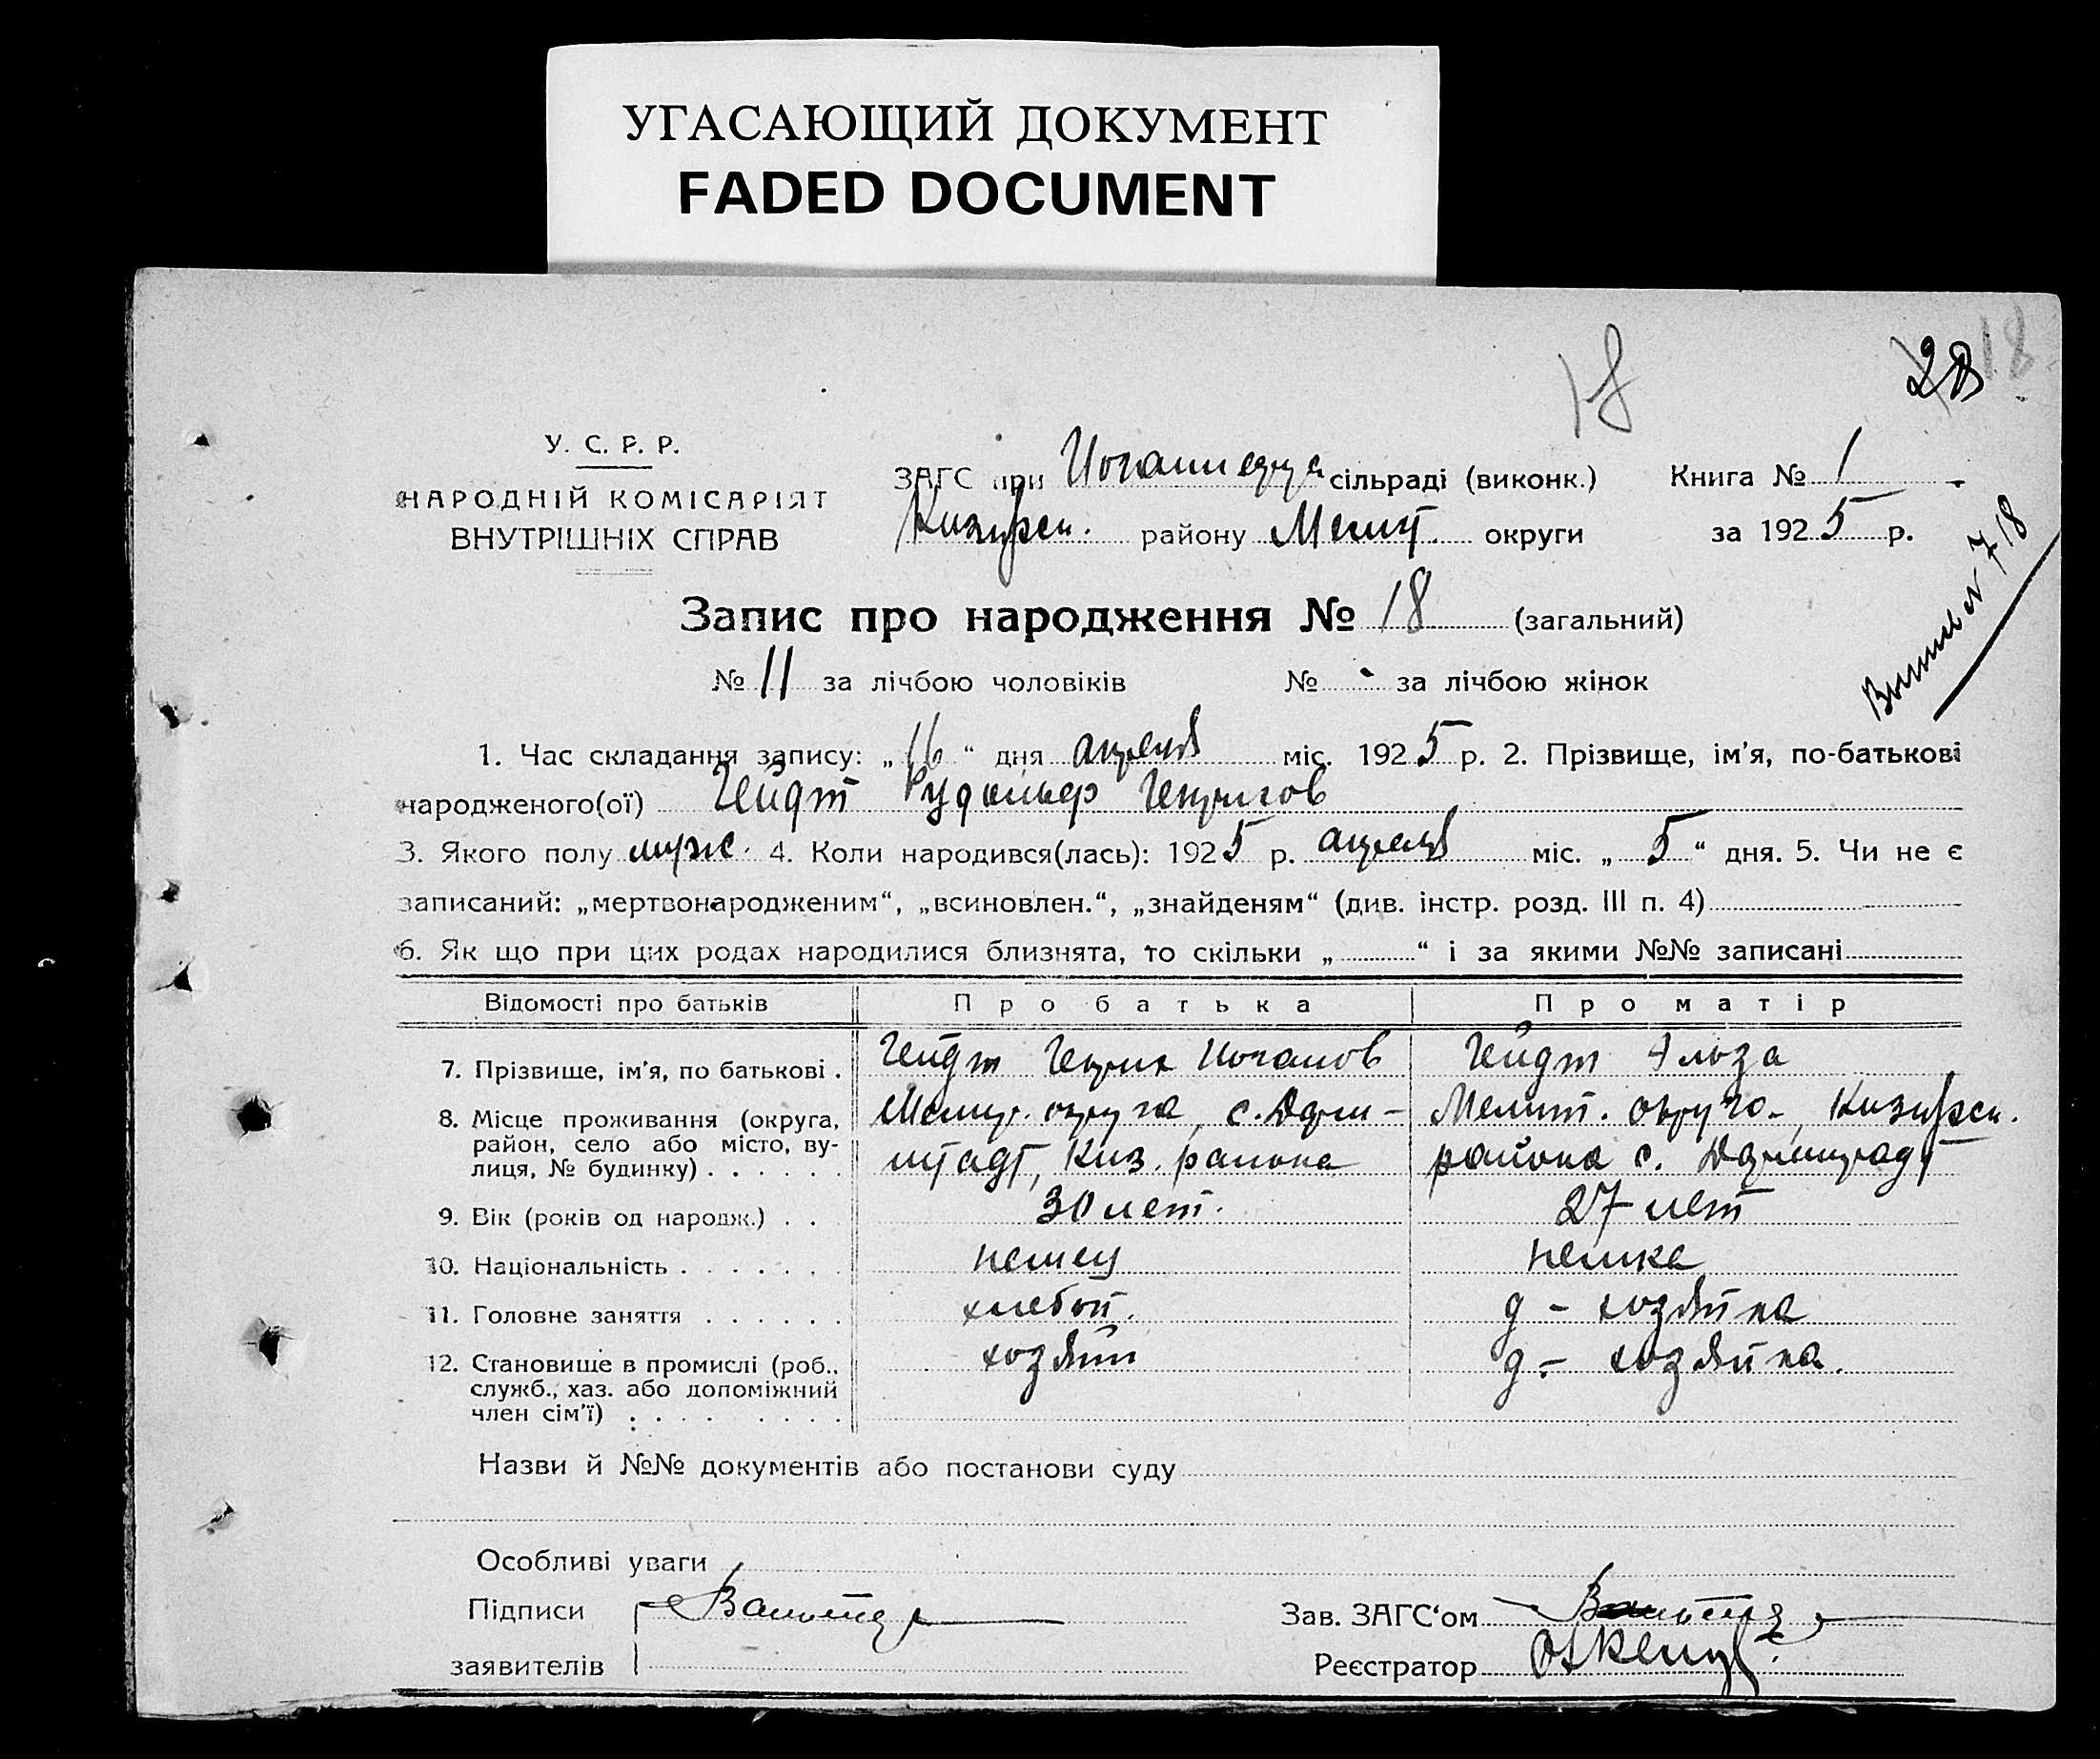 УГАСАЮЩИЙ ДОКУМЕНТ
FADED DOCUMENT
18
28
18
У. С. Р. Р.
НАРОДНІЙ КОМІСАРІЯТ
ВНУТРІШНІХ СПРАВ
ЗАГС при сільраді (виконк.) Книга № 1
району Мелит. округи за 1925 р.
718
Запис про народження № 18 (загальний)
№ 11 за лічбою чоловіків № за лічбою жінок
1. Час складання запису: „16“ дня апреля міс. 1925 р. 2. Прізвище, ім'я, по-батькові
народженого(ої) Гейдт Рудольф Генрихов
3. Якого полу муж. 4. Коли народився(лась): 1925 р. апреля міс. „5“ дня. 5. Чи не є
записаний: „мертвонародженим“, „всиновлен.“, „знайденям“ (див. інстр. розд. III п. 4)
6. Як що при цих родах народилися близнята, то скільки „ “ і за якими №№ записані
Відомості про батьків Про батька Про матір
7. Прізвище, ім'я, по батькові . Гейдт Генрих Иоганов Гейдт Эльза
8. Місце проживання (округа, Мелит. округа, с. Дарм- Мелит. округа,
район, село або місто, ву- штадт, Киз. района района с. Дармштадт
лиця, № будинку) . . . . .
9. Вік (років од народж.) . . 30 лет. 27 лет
10. Національність . . . . . . немец немка
11. Головне заняття . . . . . . хлебоп. д - хозяйка
12. Становище в промислі (роб., хозяин д - хозяйка.
служб., хаз. або допоміжний
член сім'ї) . . . . . . . .
Назви й №№ документів або постанови суду
Особливі уваги
Підписи Вальтер Зав. ЗАГС'ом Вальтер
заявителів Реєстратор